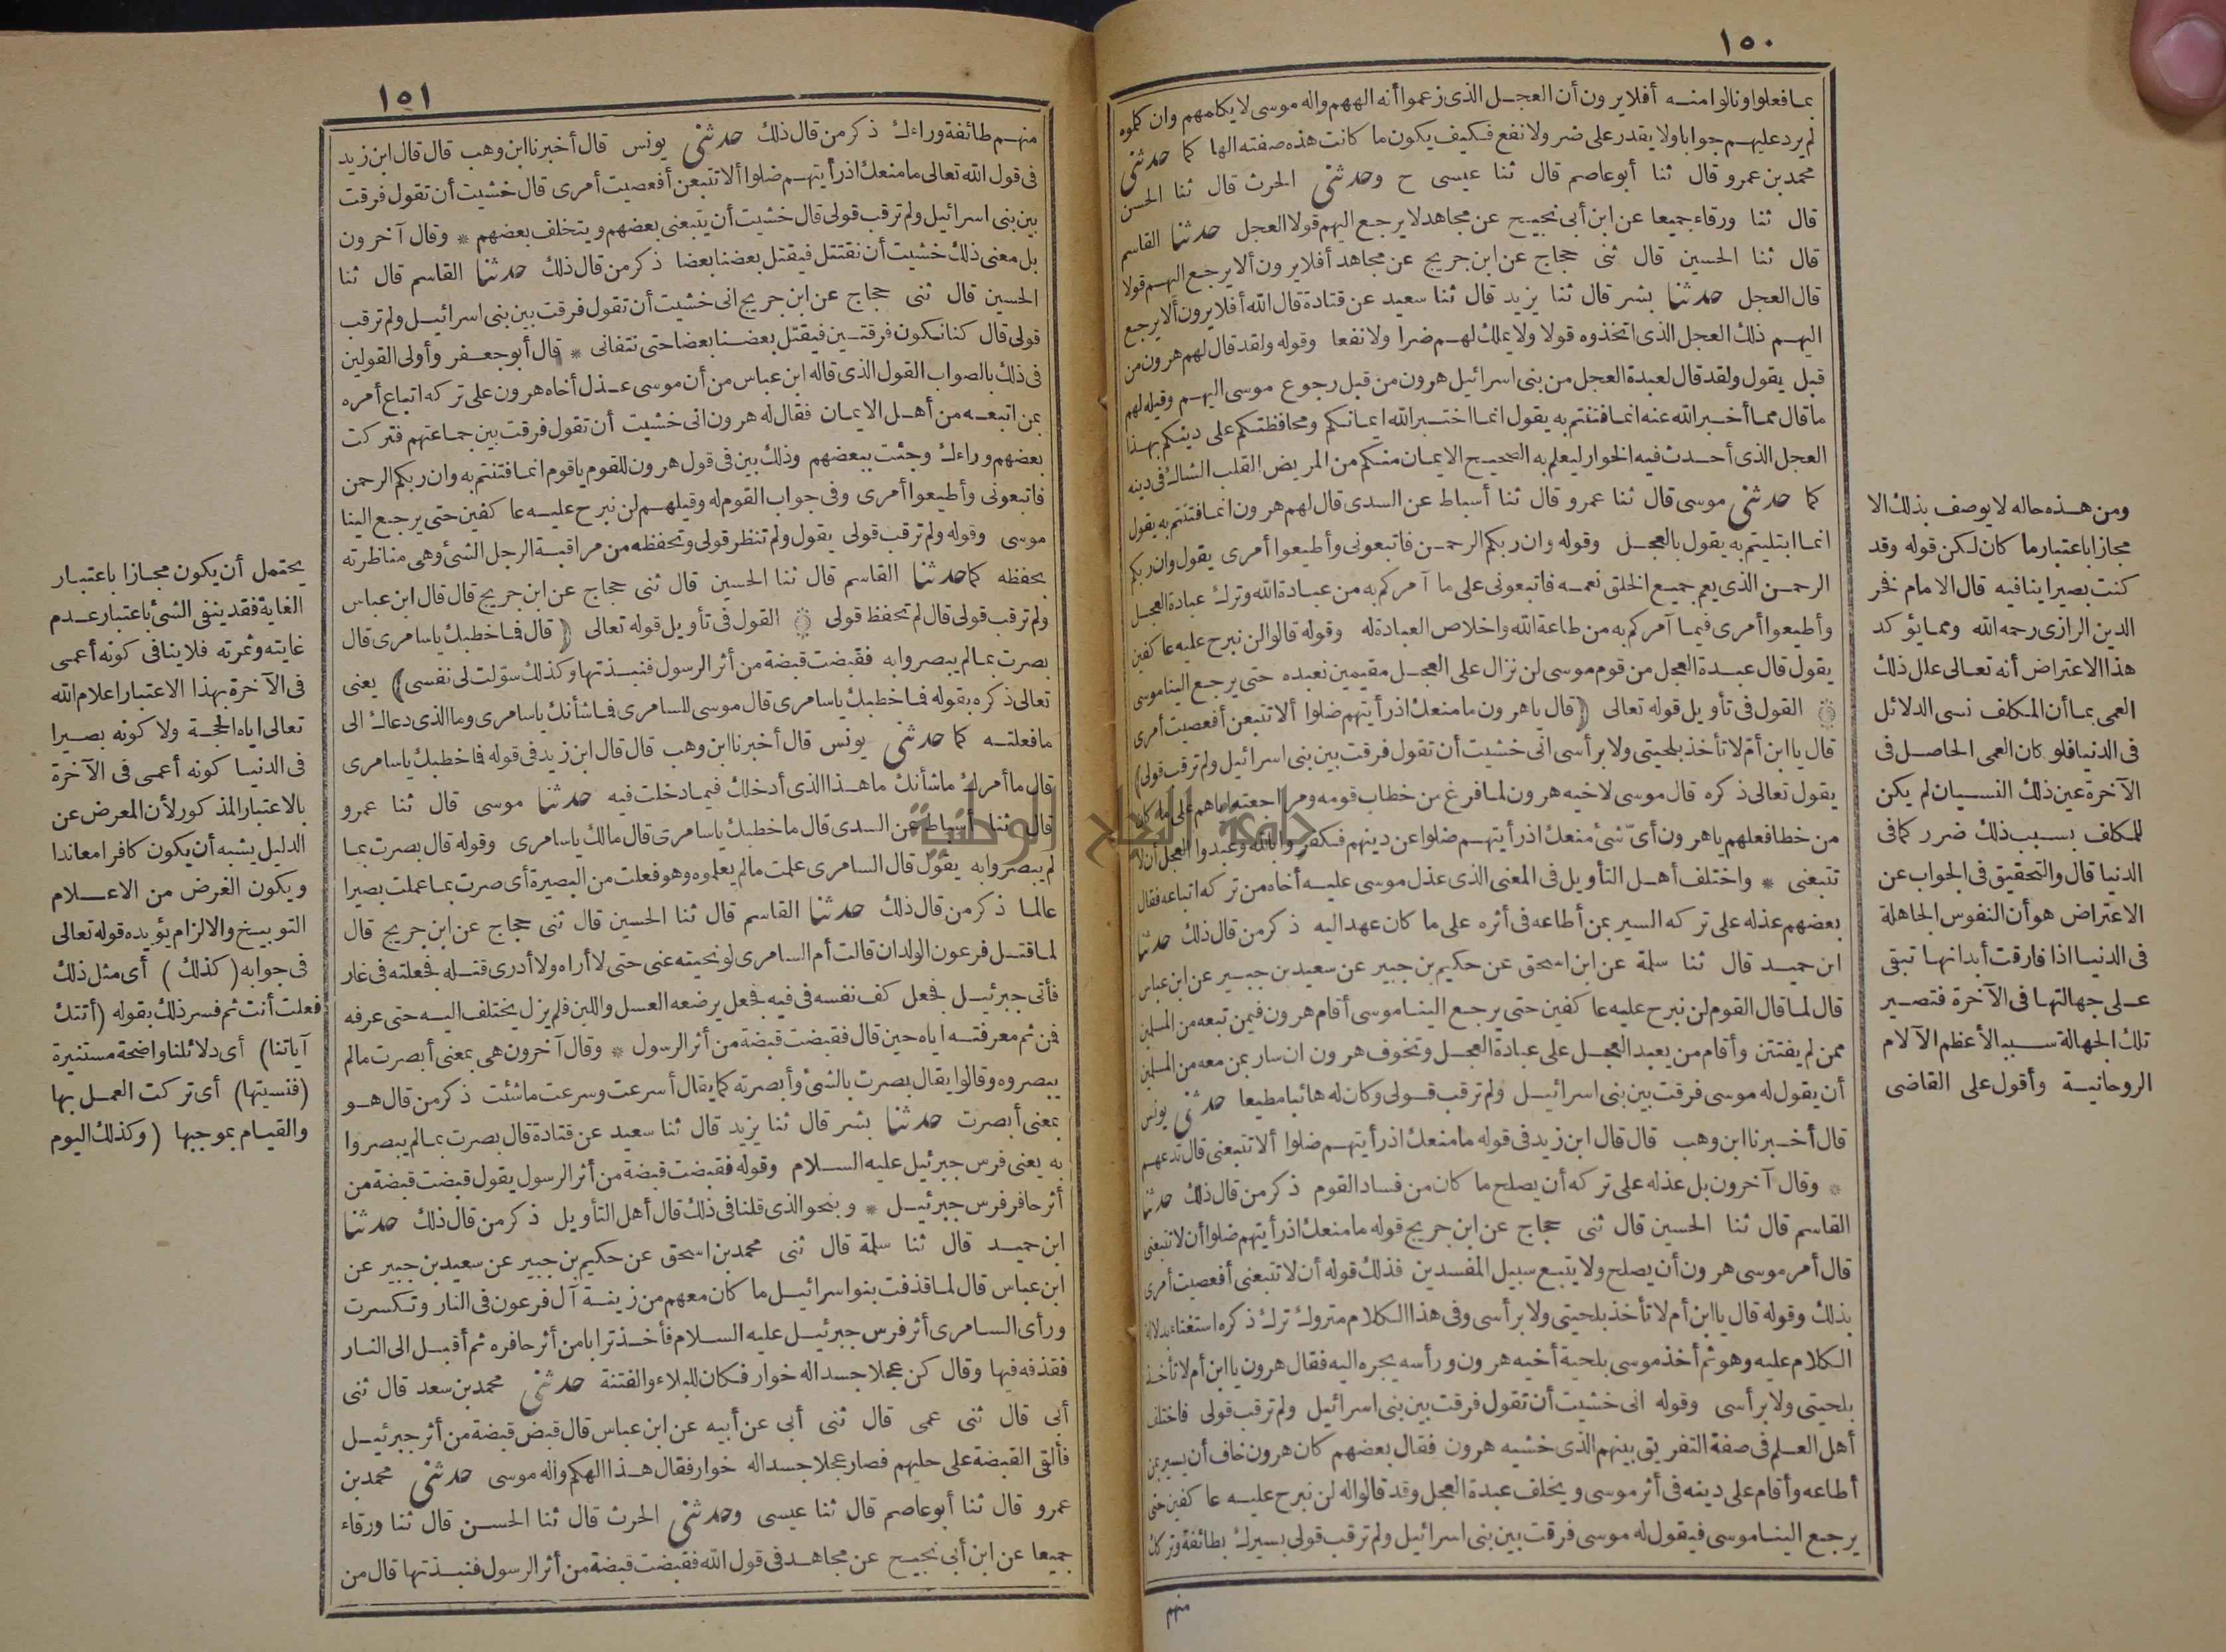 ١٥٠
بما فعلوا ونالوا منه أفلا يرون أن العجل الذى زعموا أنه الههم واله موسى لا يكلمهم وان كلموه
لم يرد عليهم جوابا ولا يقدر على ضر ولا نفع فكيف يكون ما كانت هذه صفته الها كما حدثنى
محمد بن عمرو قال ثنا أبو عاصم قال ثنا عيسى ح وحدثنى الحرث قال ثنا الحسن
قال ثنا ورقاء جميعا عن ابن أبى نجيح عن مجاهد لا يرجع اليهم قولا العجل حدثنا القاسم
قال ثنا الحسين قال ثنى حجاج عن ابن جريج عن مجاهد أفلا يرون ألا يرجع اليهم قولا
قال العجل حدثنا بشر قال ثنا يزيد قال ثنا سعيد عن قتادة قال الله أفلا يرون ألا يرجع
اليهم ذلك العجل الذى اتخذوه قولا ولا يملك لهم ضرا ولا نفعا وقوله ولقد قال لهم هرون من
قبل يقول ولقد قال لعبدة العجل من بنى اسرائيل هرون من قبل رجوع موسى اليهم وقيله لهم
ما قال مما أخبر الله عنه انما فتنتم به يقول انما اختبر الله ايمانكم ومحافظتكم على دينكم بهذا
العجل الذى أحدث فيه الخوار ليعلم به الصحيح الايمان منكم من المريض القلب الشاك فى دينه
كما حدثنى موسى قال ثنا عمرو قال ثنا أسباط عن السدى قال لهم هرون انما فتنتم به يقول
انما ابتليتم به يقول بالعجل وقوله وان ربكم الرحمن فاتبعونى وأطيعوا أمرى يقول وان ربكم
الرحمن الذى يعم جميع الخلق نعمه فاتبعونى على ما آمركم به من عبادة الله وترك عبادة العجل
وأطيعوا أمرى فيما آمركم به من طاعة الله واخلاص العبادة له وقوله قالوا لن نبرح عليه عاكفين
يقول قال عبدة العجل من قوم موسى لن نزال على العجل مقيمين نعبده حتى يرجع الينا موسى
۞ القول فى تأويل قوله تعالى (قال يا هرون ما منعك اذ رأيتهم ضلوا ألا تتبعن أفعصيت أمرى
قال يا ابن أمّ لا تأخذ بلحيتى ولا برأسى انى خشيت أن تقول فرقت بين بنى اسرائيل ولم ترقب قولى)
يقول تعالى ذكره قال موسى لأخيه هرون لما فرغ من خطاب قومه ومراجعته اياهم على ما كان
من خطا فعلهم يا هرون أىّ شئ منعك اذ رأيتهم ضلوا عن دينهم فكفروا بالله وعبدوا العجل أن لا
تتبعنى * واختلف أهل التأويل فى المعنى الذى عذل موسى عليه أخاه من تركه اتباعه فقال
بعضهم عذله على تركه السير بمن أطاعه فى أثره على ما كان عهد اليه ذكر من قال ذلك حدثنا
ابن حميد قال ثنا سلمة عن ابن اسحق عن حكيم بن جبير عن سعيد بن جبير عن ابن عباس
قال لما قال القوم لن نبرح عليه عاكفين حتى يرجع الينا موسى أقام هرون فيمن تبعه من المسلمين
ممن لم يفتتن وأقام من يعبد العجل على عبادة العجل وتخوف هرون ان سار بمن معه من المسلمين
أن يقول له موسى فرقت بين بنى اسرائيل ولم ترقب قولى وكان له هائبا مطيعا حدثنى يونس
قال أخبرنا ابن وهب قال قال ابن زيد فى قوله ما منعك اذ رأيتهم ضلوا ألا تتبعنى قال تدعهم
* وقال آخرون بل عذله على تركه أن يصلح ما كان من فساد القوم ذكر من قال ذلك حدثنا
القاسم قال ثنا الحسين قال ثنى حجاج عن ابن جريج قوله ما منعك اذ رأيتهم ضلوا أن لا تتبعنى
قال أمر موسى هرون أن يصلح ولا يتبع سبيل المفسدين فذلك قوله أن لا تتبعنى أفعصيت أمرى
بذلك وقوله قال يا ابن أم لا تأخذ بلحيتى ولا برأسى وفى هذا الكلام متروك ترك ذكره استغناء بدلالة
الكلام عليه وهو ثم أخذ موسى بلحية أخيه هرون ورأسه يجره اليه فقال هرون يا ابن أم لا تأخذ
بلحيتى ولا برأسى وقوله انى خشيت أن تقول فرقت بين بنى اسرائيل ولم ترقب قولى فاختلف
أهل العلم فى صفة التفريق بينهم الذى خشيه هرون فقال بعضهم كان هرون خاف أن يسير بمن
أطاعه وأقام على دينه فى أثر موسى ويخلف عبدة العجل وقد قالوا له لن نبرح عليه عاكفين حتى
يرجع الينا موسى فيقول له موسى فرقت بين بنى اسرائيل ولم ترقب قولى بسيرك بطائفة وتركك
منهم
ومن هذه حاله لا يوصف بذلك الا
مجازا باعتبار ما كان لكن قوله وقد
كنت بصيرا ينافيه قال الامام فخر
الدين الرازى رحمه الله ومما يؤكد
هذا الاعتراض أنه تعالى علل ذلك
العمى بما أن المكلف نسى الدلائل
فى الدنيا فلو كان العمى الحاصل فى
الآخرة عين ذلك النسيان لم يكن
للمكلف بسبب ذلك ضرر كما فى
الدنيا قال والتحقيق فى الجواب عن
الاعتراض هو أن النفوس الجاهلة
فى الدنيا اذا فارقت أبدانها تبقى
على جهالتها فى الآخرة فتصير
تلك الجهالة سببا لأعظم الآلام
الروحانية وأقول على القاضى
١٥١
منهم طائفة وراءك ذكر من قال ذلك حدثنى يونس قال أخبرنا ابن وهب قال قال ابن زيد
فى قول الله تعالى ما منعك اذ رأيتهم ضلوا ألا تتبعن أفعصيت أمرى قال خشيت أن تقول فرقت
بين بنى اسرائيل ولم ترقب قولى قال خشيت أن يتبعنى بعضهم ويتخلف بعضهم * وقال آخرون
بل معنى ذلك خشيت أن نقتتل فيقتل بعضنا بعضا ذكر من قال ذلك حدثنا القاسم قال ثنا
الحسين قال ثنى حجاج عن ابن جريج انى خشيت أن تقول فرقت بين بنى اسرائيل ولم ترقب
قولى قال كنا نكون فرقتين فيقتل بعضنا بعضا حتى نتفانى * قال أبو جعفر وأولى القولين
فى ذلك بالصواب القول الذى قاله ابن عباس من أن موسى عذل أخاه هرون على تركه اتباع أمره
بمن اتبعه من أهل الايمان فقال له هرون انى خشيت أن تقول فرقت بين جماعتهم فتركت
بعضهم وراءك وجئت ببعضهم وذلك بين فى قول هرون للقوم يا قوم انما فتنتم به وان ربكم الرحمن
فاتبعونى وأطيعوا أمرى وفى جواب القوم له وقيلهم لن نبرح عليه عاكفين حتى يرجع الينا
موسى وقوله ولم ترقب قولى يقول ولم تنظر قولى وتحفظه من مراقبة الرجل الشئ وهى مناظرته
بحفظه كما حدثنا القاسم قال ثنا الحسين قال ثنى حجاج عن ابن جريج قال قال ابن عباس
ولم ترقب قولى قال لم تحفظ قولى ۞ القول فى تأويل قوله تعالى (قال فما خطبك يا سامرى قال
بصرت بما لم يبصروا به فقبضت قبضة من أثر الرسول فنبذتها وكذلك سوّلت لى نفسى) يعنى
تعالى ذكره بقوله فما خطبك يا سامرى قال موسى للسامرى فما شأنك يا سامرى وما الذى دعاك الى
ما فعلته كما حدثنى يونس قال أخبرنا ابن وهب قال قال ابن زيد فى قوله فما خطبك يا سامرى
قال ما أمرك ما شأنك ما هذا الذى أدخلك فيما دخلت فيه حدثنا موسى قال ثنا عمرو
قال ثنا أسباط عن السدى قال ما خطبك يا سامرى قال مالك يا سامرى وقوله قال بصرت بما
لم يبصروا به يقول قال السامرى علمت ما لم يعلموه وهو فعلت من البصيرة أى صرت بما عملت بصيرا
عالما ذكر من قال ذلك حدثنا القاسم قال ثنا الحسين قال ثنى حجاج عن ابن جريج قال
لما قتل فرعون الولدان قالت أم السامرى لو نحيته عنى حتى لا أراه ولا أدرى قتله فجعلته فى غار
فأتى جبرئيل فجعل كف نفسه فى فيه فجعل يرضعه العسل واللبن فلم يزل يختلف اليه حتى عرفه
فمن ثم معرفته اياه حين قال فقبضت قبضة من أثر الرسول * وقال آخرون هى بمعنى أبصرت ما لم
يبصروه وقالوا يقال بصرت بالشئ وأبصرته كما يقال أسرعت وسرعت ما شئت ذكر من قال هو
بمعنى أبصرت حدثنا بشر قال ثنا يزيد قال ثنا سعيد عن قتادة قال بصرت بما لم يبصروا
به يعنى فرس جبرئيل عليه السلام وقوله فقبضت قبضة من أثر الرسول يقول قبضت قبضة من
أثر حافر فرس جبرئيل * وبنحو الذى قلنا فى ذلك قال أهل التأويل ذكر من قال ذلك حدثنا
ابن حميد قال ثنا سلمة قال ثنى محمد بن اسحق عن حكيم بن جبير عن سعيد بن جبير عن
ابن عباس قال لما قذفت بنو اسرائيل ما كان معهم من زينة آل فرعون فى النار وتكسرت
ورأى السامرى أثر فرس جبرئيل عليه السلام فأخذ ترابا من أثر حافره ثم أقبل الى النار
فقذفه فيها وقال كن عجلا جسدا له خوار فكان للبلاء والفتنة حدثنى محمد بن سعد قال ثنى
أبى قال ثنى عمى قال ثنى أبى عن أبيه عن ابن عباس قال قبض قبضة من أثر جبرئيل
فألقى القبضة على حليهم فصار عجلا جسدا له خوار فقال هذا الهكم واله موسى حدثنى محمد بن
عمرو قال ثنا أبو عاصم قال ثنا عيسى وحدثنى الحرث قال ثنا الحسن قال ثنا ورقاء
جميعا عن ابن أبى نجيح عن مجاهد فى قول الله فقبضت قبضة من أثر الرسول فنبذتها قال من
يحتمل أن يكون مجازا باعتبار
الغاية فقد ينفى الشئ باعتبار عدم
غايته وثمرته فلا ينافى كونه أعمى
فى الآخرة بهذا الاعتبار اعلام الله
تعالى اياه الحجة ولا كونه بصيرا
فى الدنيا كونه أعمى فى الآخرة
بالاعتبار المذكور لأن المعرض عن
الدليل يشبه أن يكون كافرا معاندا
ويكون الغرض من الاعلام
التوبيخ والالزام يؤيده قوله تعالى
فى جوابه (كذلك) أى مثل ذلك
فعلت أنت ثم فسر ذلك بقوله (أتتك
آياتنا) أى دلائلنا واضحة مستنيرة
(فنسيتها) أى تركت العمل بها
والقيام بموجبها (وكذلك اليوم
جامعة النجاح الوطنية